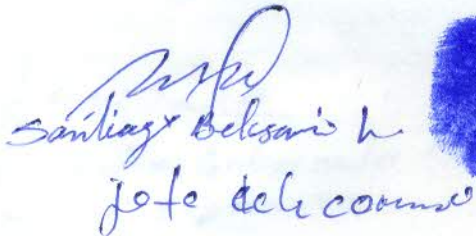 Santiago Belisario L
jefe de la comuni